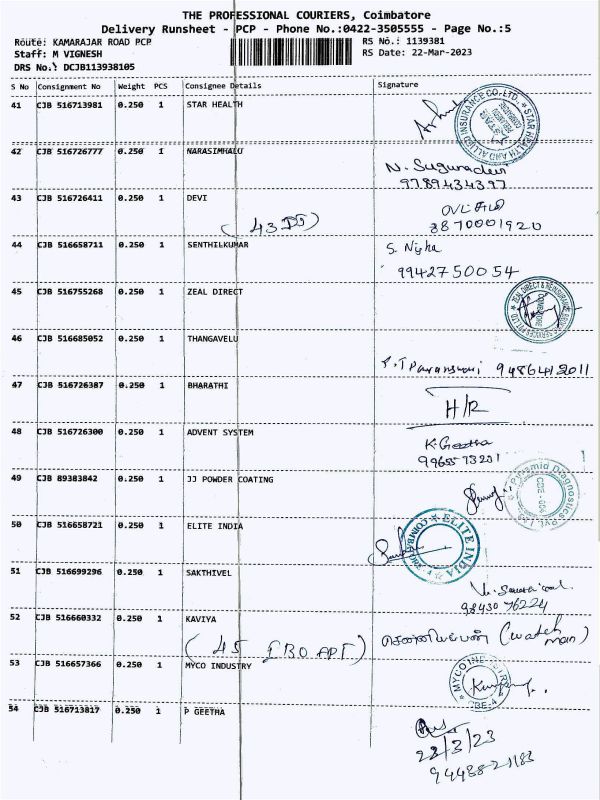 THE PROFESSIONAL COURIERS, Coimbatore
Delivery Runsheet - PCP - Phone No.:0422-3505555 - Page No.:5
Route: KAMARAJAR ROAD PCP
RS No.: 1139381
Staff: M VIGNESH
RS Date: 22-Mar-2023
DRS No.: DCJB113938105
S No Consignment No Weight PCS Consignee Details Signature
41 CJB 516713981 0.250 1 STAR HEALTH
STAR HEALTH AND ALLIED INSURANCE CO. LTD.
42 CJB 516726777 0.250 1 NARASIMHALU
N. Sugunadevi
9789434397
43 CJB 516726411 0.250 1 DEVI
(43 DJ)
8870001920
44 CJB 516658711 0.250 1 SENTHILKUMAR
S. Nigha
9942750054
45 CJB 516755268 0.250 1 ZEAL DIRECT
ZEAL DIRECT & REINSURANCE
COIMBATORE
46 CJB 516685052 0.250 1 THANGAVELU
9486412011
47 CJB 516726387 1 BHARATHI
0.250
H/R
48 CJB 516726300 0.250 1 ADVENT SYSTEM
K. Geetha
9965573201
49 CJB 89383842 0.250 1 JJ POWDER COATING
Pyramid Diagnostics Pvt. Ltd.
50 CJB 516658721 0.250 1 ELITE INDIA
ELITE INDIA
51 CJB 516699296 0.250 1 SAKTHIVEL
9843076224
52 CJB 516660332 0.250 1 KAVIYA
(watch man)
(45 APT)
53 CJB 516657366 0.250 1 MYCO INDUSTRY
MYCO INDUSTRY
CBE-4
54 CJB 516713817 0.250 1 P GEETHA
22/3/23
94438-21183